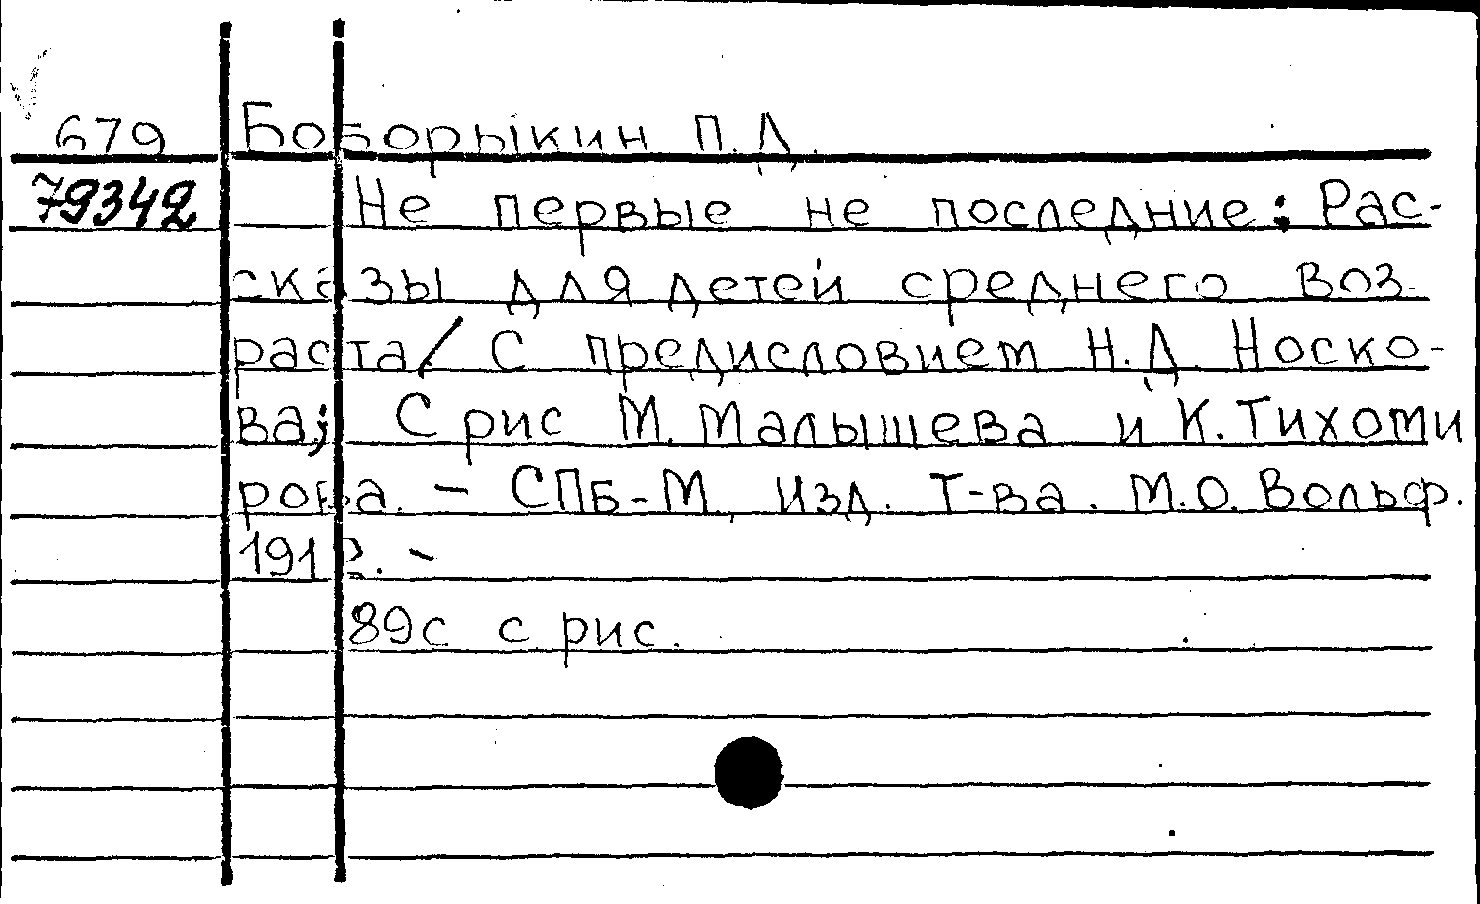 679 Боборыкин П.Д.
79342 Не первые не последние: Рас-
сказы для детей среднего воз-
раста/ С предисловием Н.Д. Носко-
ва; С рис М. Малышева и К. Тихоми
рова. – СПБ-М, Изд. Т-ва. М.О. Вольф.
1912. –
89с с рис.